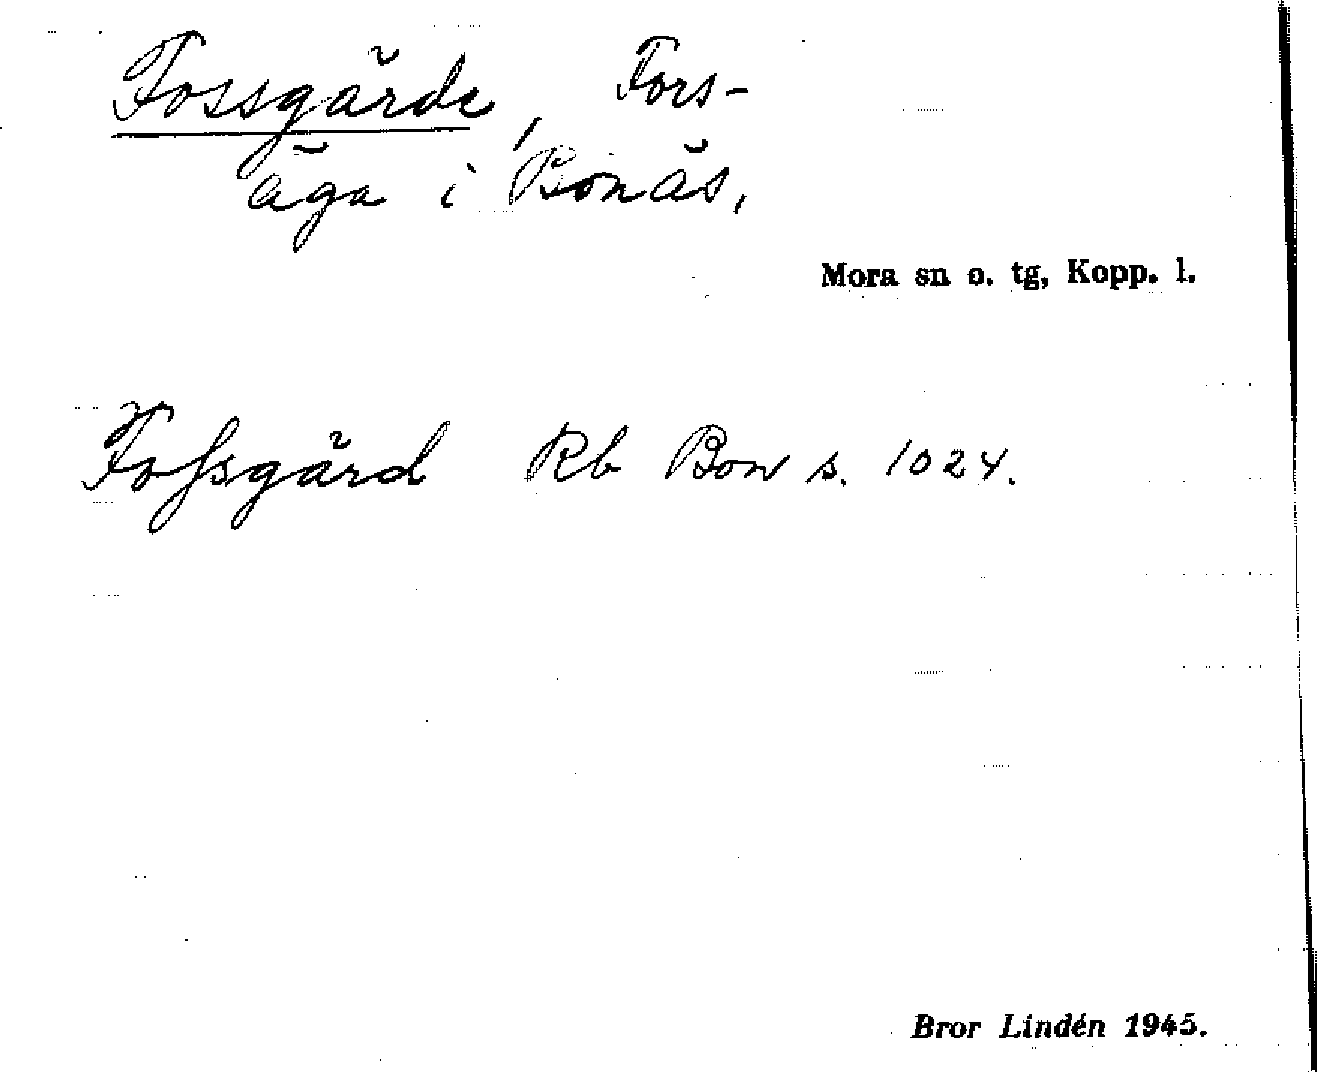 Fossgärde, Fors-
äga i Bonäs,
Mora sn o. tg, Kopp. l.
Fossgärd Rb Bon s. 1024.
Bror Lindén 1945.